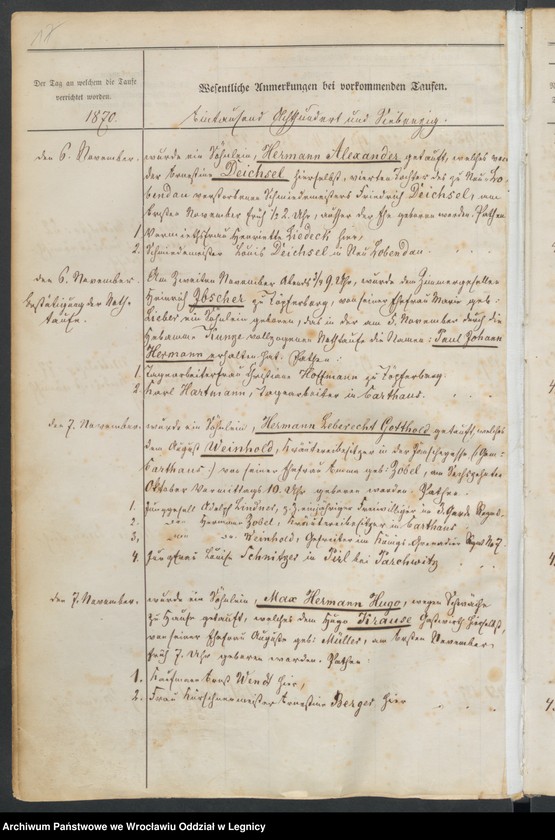 Der Tag an welchem die Taufe
verrichtet worden.
1870.
Wesentliche Anmerkungen bei vorkommenden Taufen.
Eintausend Achthundert und Siebenzig.
den 6. November.
wurde ein Söhnlein, Hermann Alexander getauft, welches von
der Ernestine Deichsel hierselbst, vierten Tochter des zu Neu-Lo-
bendau verstorbenen Schmiedemeisters Friedrich Deichsel, am
ersten November früh ½2 Uhr, außer der Ehe geboren worden. Pathen
1. Henriette Liedeck hier,
2. Schmiedemeister Louis Deichsel in Neu Lobendau.
den 6. November.
Bestätigung der Noth-
taufe.
Am zweiten November Abends ½9 Uhr, wurde dem Zimmergesellen
Heinrich Zöscher zu Töpferberg, von seiner Ehefrau Marie geb:
Lieber ein Söhnlein geboren, das in der am 3. November durch die
Hebamme Kunze vollzogenen Nothtaufe die Namen: Paul Johann
Hermann erhalten hat. Pathen:
1. Tagearbeiterfrau Christiane Hoffmann zu Töpferberg.
2. Karl Hartmann, Tagearbeiter in Carthaus.
den 7. November.
wurde ein Söhnlein, Hermann Leberecht Gotthold getauft, welches
dem August Weinhold, Kräutereibesitzer in der
Carthaus) von seiner Ehefrau Emma geb: Zobel, am sechszehnten
Oktober Vormittags 10. Uhr geboren worden. Pathen.
1. Junggesell Adolph Lindner, z. Z. einjähriger Freiwilliger im 3. Garde Regmt.
2. Hermann Zobel, Kräutereibesitzer in Carthaus
3. Weinhold, Gefreiter im Königs-Grenadier Regmt No 7.
4. Jungfrau Louise Schnitzer in bei Parchwitz
den 7. November.
wurde ein Söhnlein, Max Hermann Hugo, wegen Schwäche
zu Hause getauft, welches dem Hugo Krause, Gastwirth hierselbst,
von seiner Ehefrau Auguste geb: Müller, am ersten November,
früh 7. Uhr geboren worden. Pathen:
1. Kaufmann Ernst Wendt hier,
2. Frau Kürschnermeister Ernestine Berger hier
Archiwum Państwowe we Wrocławiu Oddział w Legnicy